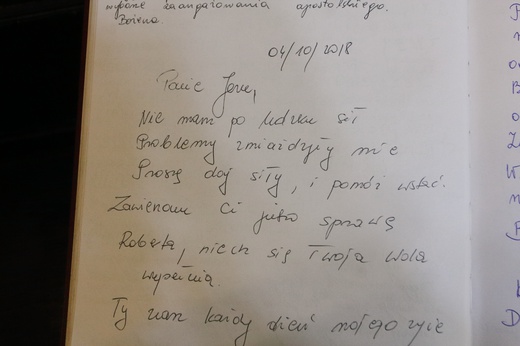 zaangażowania apostolskiego.
Bożena.
04/10/2018
Panie Jezu,
Nie mam po ludzku sił
Problemy zmiażdżyły mnie
Proszę daj siły, i pomóż wstać.
Zawierzam Ci jutro sprawę
Roberta, niech się Twoja Wola
wypełnia.
Ty znasz każdy dzień mojego życie